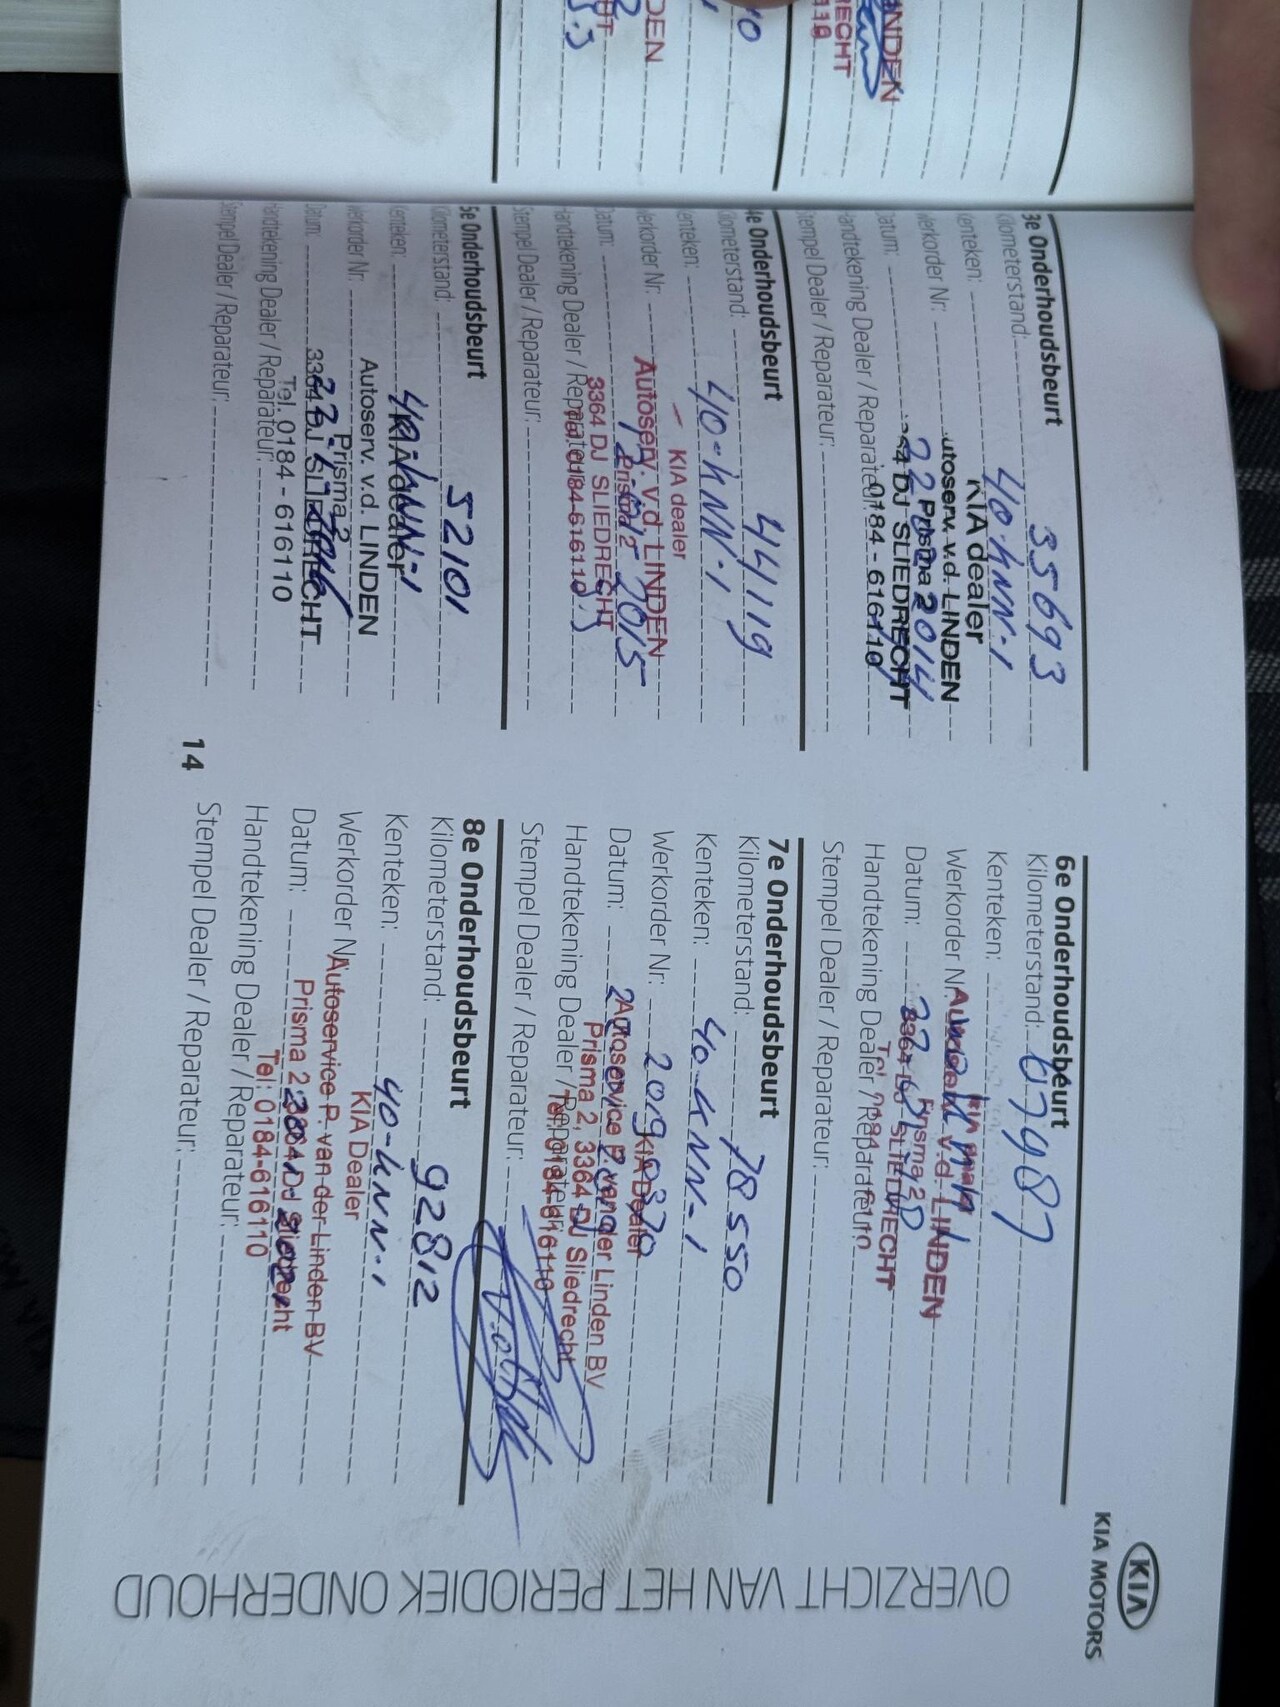 KIA
KIA MOTORS
OVERZICHT VAN HET PERIODIEK ONDERHOUD
3e Onderhoudsbeurt
Kilometerstand: 35693
Kenteken: 40-hNN-1
KIA dealer
Werkorder Nr:
Autoserv. v.d. LINDEN
Datum: 22 2014
Prisma 2
3364 DJ SLIEDRECHT
Handtekening Dealer / Reparateur:
0184 - 616110
Stempel Dealer / Reparateur:
4e Onderhoudsbeurt
Kilometerstand: 44119
Kenteken: 40-hNN-1
KIA dealer
Werkorder Nr:
Autoserv. v.d. LINDEN
Datum: 2015
Prisma 2
3364 DJ SLIEDRECHT
Handtekening Dealer / Reparateur:
0184-616110
Stempel Dealer / Reparateur:
5e Onderhoudsbeurt
Kilometerstand: 52101
Kenteken:
KIA dealer
Werkorder Nr:
Autoserv. v.d. LINDEN
Prisma 2
Datum:
3364 DJ SLIEDRECHT
Handtekening Dealer / Reparateur:
Tel. 0184 - 616110
Stempel Dealer / Reparateur:
14
6e Onderhoudsbeurt
Kilometerstand: 67987
Kenteken:
Werkorder Nr:
v.d. LINDEN
Prisma 2
Datum:
3364 DJ SLIEDRECHT
Handtekening Dealer / Reparateur:
Stempel Dealer / Reparateur:
7e Onderhoudsbeurt
Kilometerstand: 78550
Kenteken: 40-hNN-1
Werkorder Nr: 20190370
KIA Dealer
Datum:
Autoservice P. van der Linden BV
Prisma 2, 3364 DJ Sliedrecht
Handtekening Dealer / Reparateur:
Tel: 0184-616110
Stempel Dealer / Reparateur:
8e Onderhoudsbeurt
Kilometerstand: 92812
Kenteken: 40-hNN-1
KIA Dealer
Werkorder Nr:
Autoservice P. van der Linden BV
Datum:
Prisma 2, 3364 DJ Sliedrecht
Handtekening Dealer / Reparateur:
Tel: 0184-616110
Stempel Dealer / Reparateur: